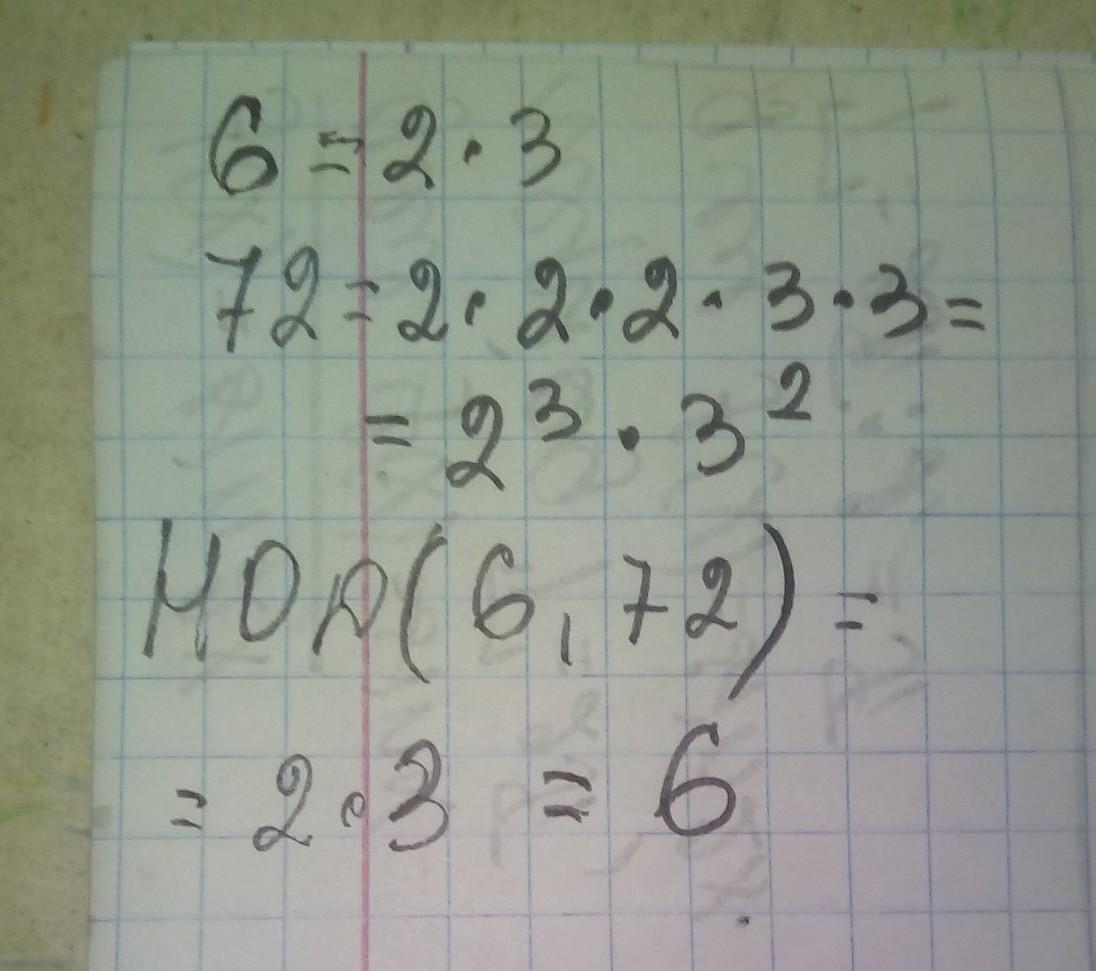 6 = 2 · 3
72 = 2 · 2 · 2 · 3 · 3 =
= 2³ · 3²
НОД(6, 72) =
= 2 · 3 = 6